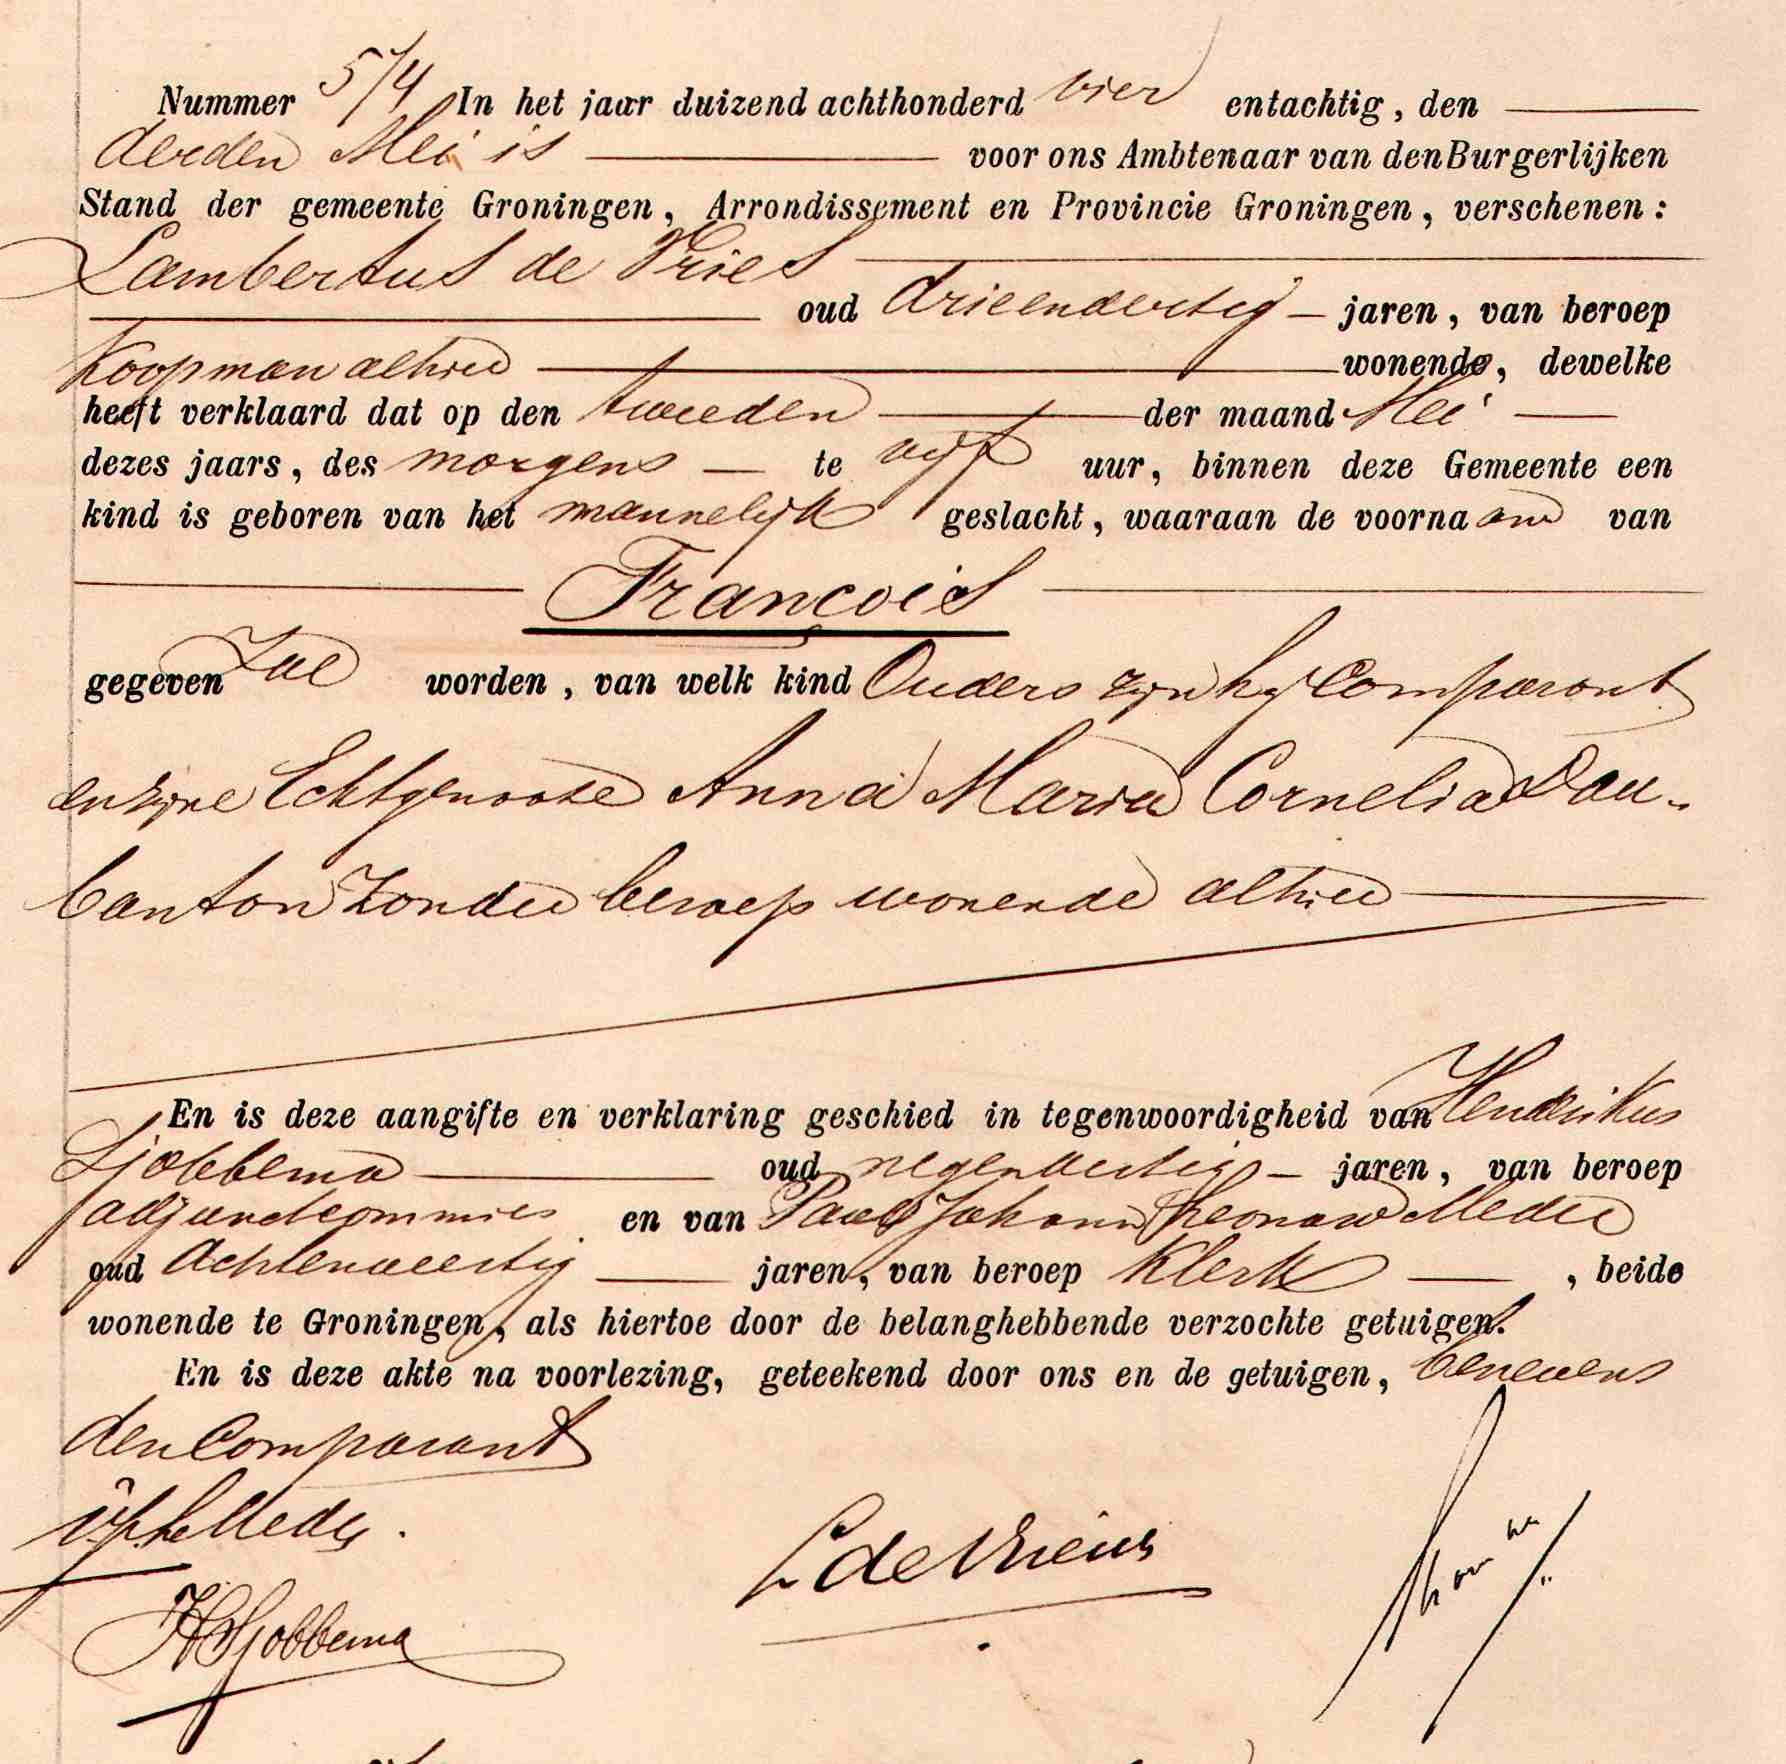 Nummer 574 In het jaar duizend achthonderd vier entachtig, den
derden Mei is voor ons Ambtenaar van den Burgerlijken
Stand der gemeente Groningen, Arrondissement en Provincie Groningen, verschenen:
Lambertus de Vries
oud drieendertig jaren, van beroep
Koopman alhier wonende, dewelke
heeft verklaard dat op den tweeden der maand Mei
dezes jaars, des morgens te vijf uur, binnen deze Gemeente een
kind is geboren van het mannelijk geslacht, waaraan de voornaam van
François
gegeven zal worden, van welk kind Ouders zijn hij Comparant
en zijne Echtgenoote Anna Maria Cornelia Dau-
banton zonder beroep wonende alhier
En is deze aangifte en verklaring geschied in tegenwoordigheid van Hendrikus
Sjobbema oud negendertig jaren, van beroep
adjunctcommies en van Paul Johann Leonard Meder
oud Achtenveertig jaren, van beroep Klerk, beide
wonende te Groningen, als hiertoe door de belanghebbende verzochte getuigen.
En is deze akte na voorlezing, geteekend door ons en de getuigen, benevens
den Comparant
Meder.
L de Vries
HSjobbema